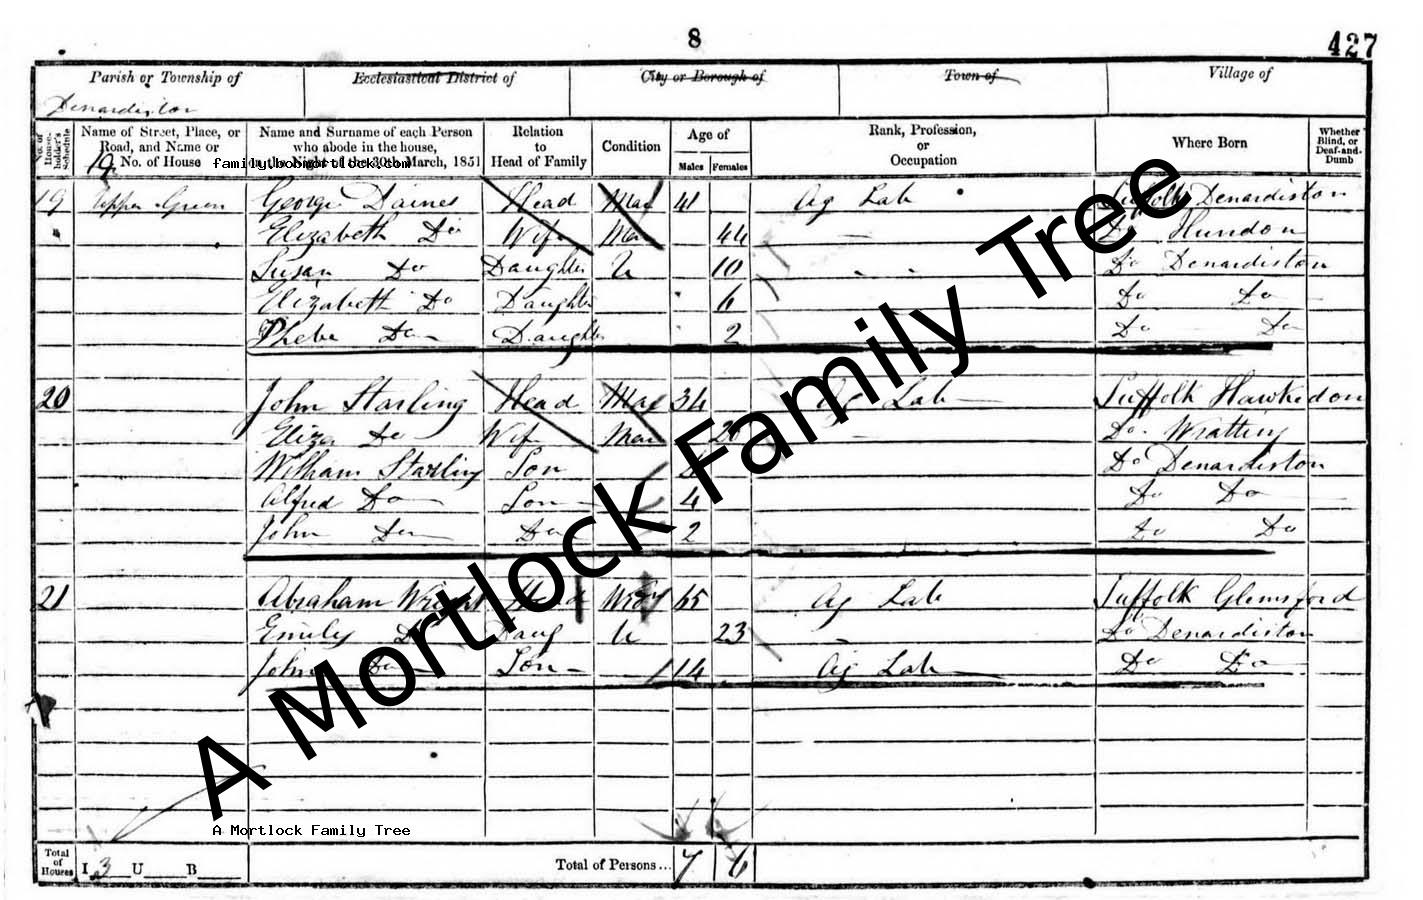 8
427
Parish or Township of Ecclesiastical District of City or Borough of Town of Village of
Denardiston
No. of House-holder's Schedule Name of Street, Place, or Road, and Name or No. of House Name and Surname of each Person who abode in the house, on the Night of the 30th March, 1851 Relation to Head of Family Condition Age of Males Females Rank, Profession, or Occupation Where Born Whether Blind, or Deaf-and-Dumb
family.bobmortlock.com
19 Upper Green George Daines Head Mar 41 Ag Lab Suffolk Denardiston
Elizabeth Do Wife Mar 44 Do Hundon
Susan Do Daughter U 10 Do Denardiston
Elizabeth Do Daughter 6 Do Do
Phebe Do Daughter 2 Do Do
20 John Starling Head Mar 34 Ag Lab Suffolk Hawkedon
Eliza Do Wife Mar Do Wratting
William Starling Son Do Denardiston
Alfred Do Son 4 Do Do
John Do Do 2 Do Do
21 Abraham Wright Head Widr 65 Ag Lab Suffolk Glemsford
Emily Do Daug U 23 Do Denardiston
John Do Son 14 Ag Lab Do Do
A Mortlock Family Tree
A Mortlock Family Tree
Total of Houses I 3 U B Total of Persons... 7 6